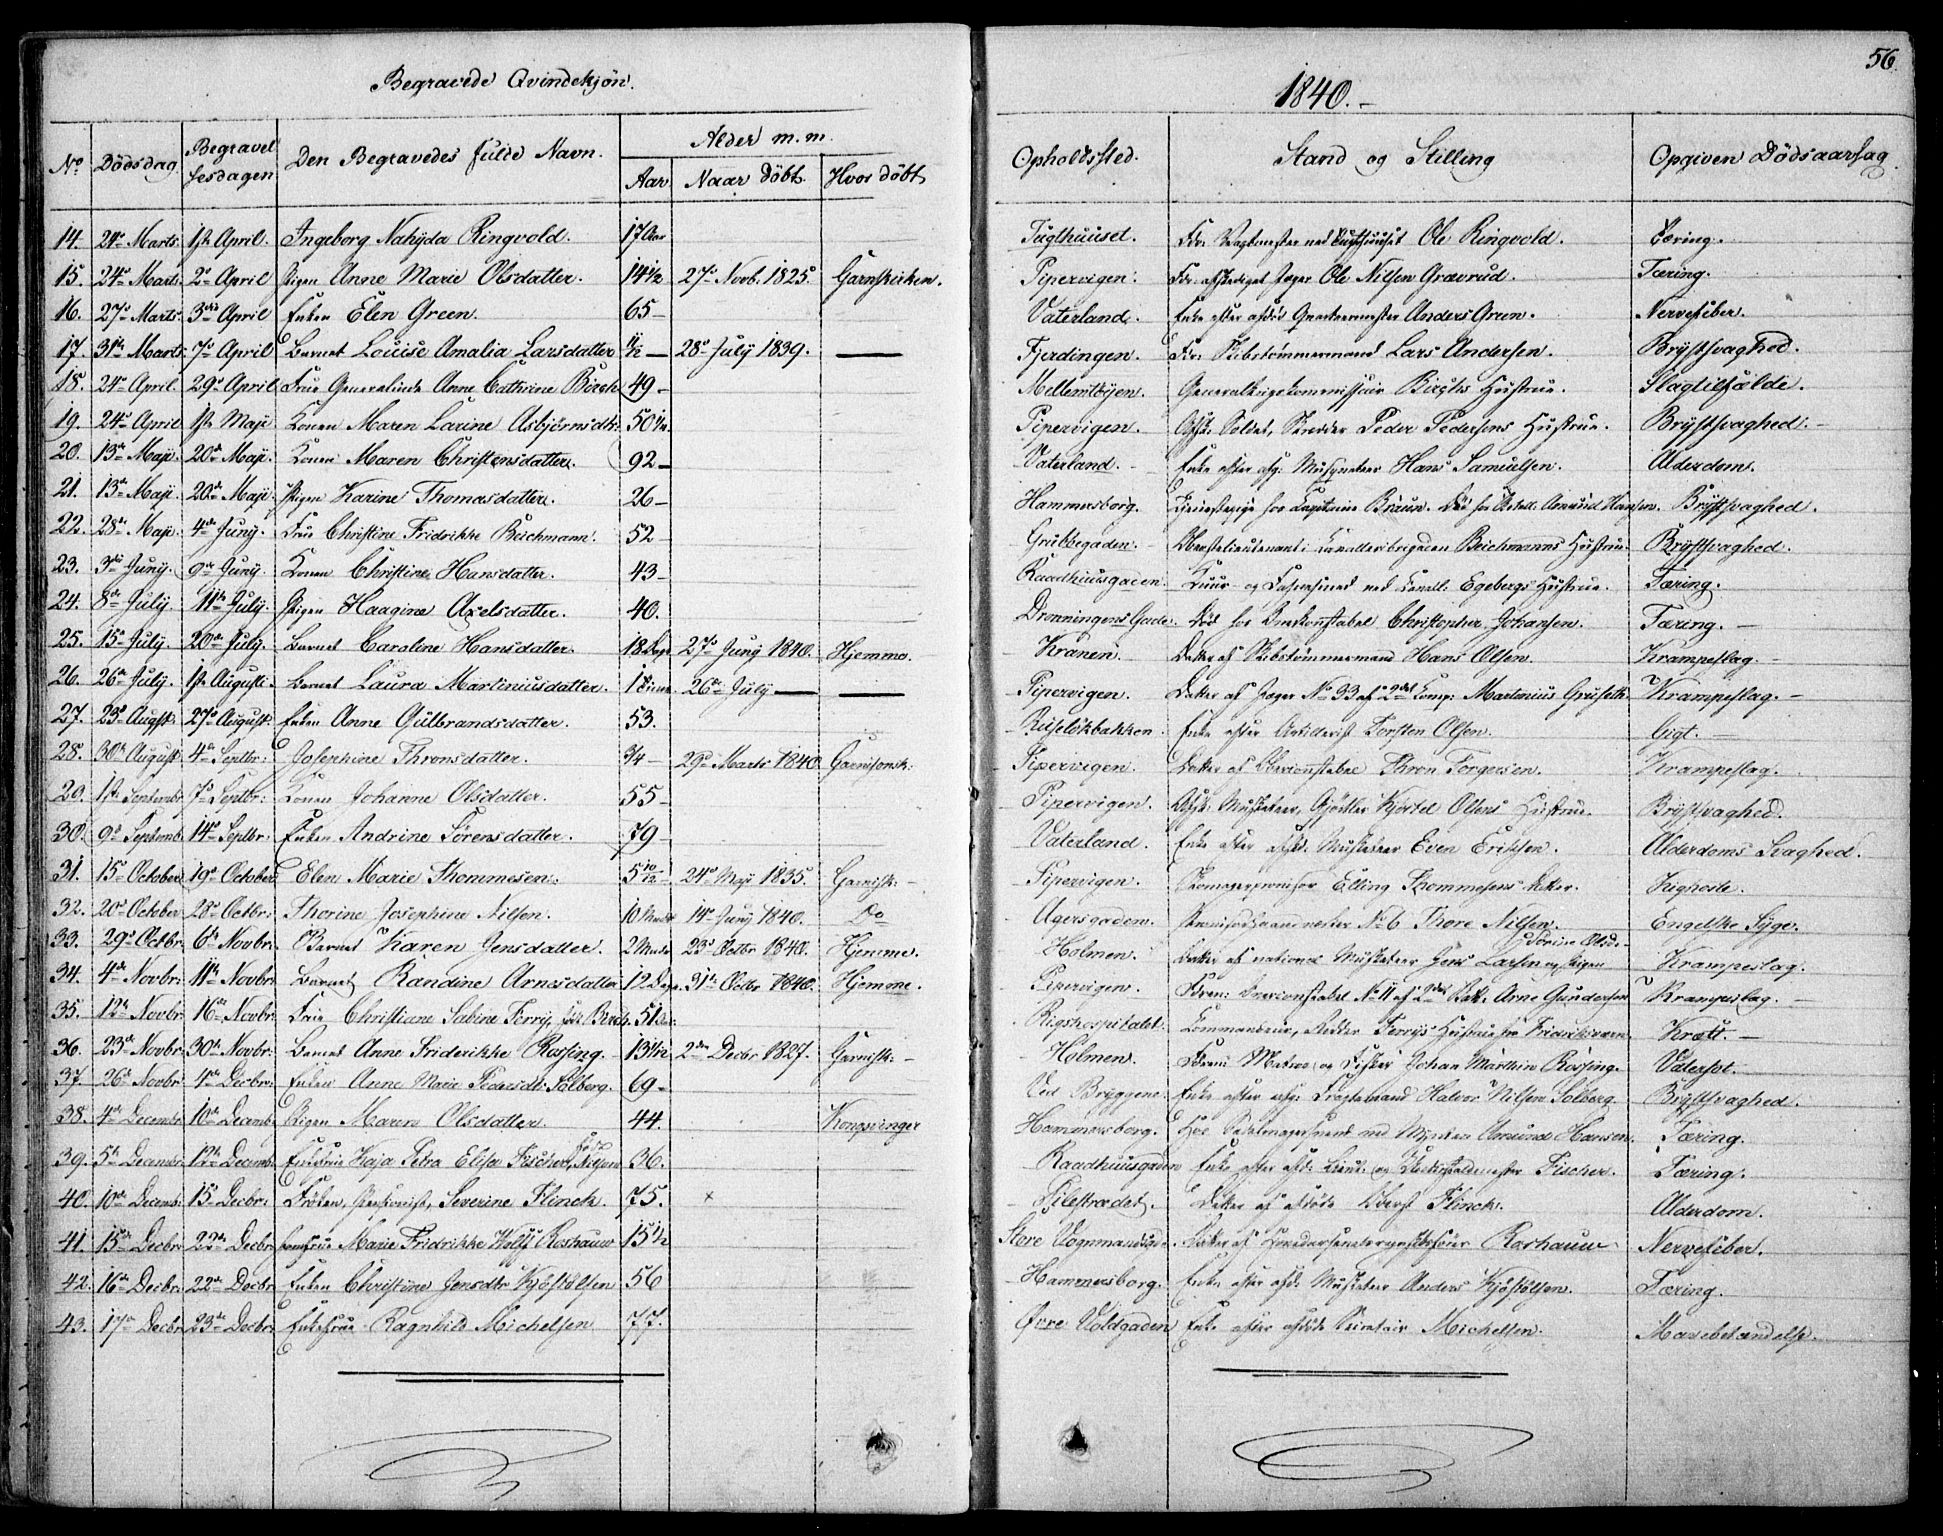 56
Begravede Qvindekjøn.
1840.
No Dödsdag Begravel sesdagen Den Begravedes fulde Navn. Alder m.m. Aar Naar döbt. Hvor döbt Opholdssted. Stand og Stilling Opgiven Dödsaarsag
14. 24de Marts. 1ste April. Ingeborg Nahÿda Ringvold. 17 Aar Tugthuuset. Ole Ringvold. Tæring.
15. 24de Marts. 2den April Pigen Anne Marie Olsdatter. 14 1/2 27de Novb. 1825. Garnskirken. Pipervigen. Fdr. afskediget Jæger Ole Nilsen Grævrud. Tæring.
16. 27de Marts. 3die April Enken Elen Green. 65 Vaterland. Enke efter afdøde Qvarteermester Anders Green. Nervefeber.
17. 31te Marts. 7de April Barnet Louise Amalia Larsdatter 28de July 1839. — Fjerdingen. Fdr. Skibstømmermand Lars Andersen. Brÿstsvaghed.
18. 24de April. 29de April Frue Generalinde Anne Cathrine Birch 49 Mellemtöyen. Generalkrigskommissair Birchs Hustrue. Slagtilfælde.
19. 24de April 1ste Maji Konen Maren Larine Asbjörnsdtr. 50 1/2 Pipervigen. Afsk. Soldat, Skredder Peder Pedersens Hustrue. Brÿstsvaghed.
20. 13de Maji. 20de Maji. Konen Maren Christensdatter. 92 Vaterland. Enke efter afg. Musqueteer Hans Samuelsen. Alderdom.
21. 13de Maji. 20de Maji. Pigen Karine Thomasdatter. 26 Hammersborg. Tjenestepige hos Capitaine Braun. Amund Hansen. Brÿstsvaghed.
22. 28de Maji. 4de Juny. Frue Christine Fridrikke Beichmann. 52 Grübbegaden. Oberstlieutenant i Cavalleribrigaden Beichmanns Hustrue Brÿstsvaghed.
23. 3die Juny. 9de Juny. Konen Christine Hansdatter. 43 Raadhuusgaden. Egebergs Hustrue. Tæring.
24. 8de July. 11te July. Pigen Haagine Axelsdatter. 40. Dronningens Gade. Død hos Christopher Johansen. Tæring.
25. 15de July. 20de July. Barnet Caroline Hansdatter. 18 Dage 27de Juny 1840. Hjemme. Kranen. Datter af Skibstømmermand Hans Olsen. Krampeslag.
26. 26de July. 1ste Augusti. Barnet Laura Martiniusdatter. 26de July — — Pipervigen. Datter af Jæger No 33 af 2det Comp: Martinius Grüseth Krampeslag.
27. 23de Augst. 27de August. Enken Anne Gulbrandsdatter. 53. Ruselökbakken. Enke efter Artillerist Torsten Olsen. Gigt.
28. 30te August 4de Septbr: Josephine Thronsdatter. 3/4 29de Marts 1840. Garnisonsk: Pipervigen. Datter af Thron Torgersen. Krampeslag.
29. 1ste Septembr 7de Septbr: Konen Johanne Olsdatter. 55 Pipervigen. Afsk. Musketeer, Kjøstel Olsens Hustrue. Brÿstsvaghed.
30. 9de Septemb. 14de Septbr: Enken Andrine Sörensdatter. 79 Vaterland. Enke efter afskd. Musketeer Even Eriksen. Alderdoms Svaghed.
31. 15de October 19de October Elen Marie Thommesen. 5 10/12 24de Maji 1835. Garnisk: Pipervigen. Elling Thommesens Datter. Kighoste.
32. 20de October 28de Octbr: Thorine Josephine Nilsen. 10 14de Juny 1840. Do Agersgaden. No 6 Thore Nilsen. Engelske Sÿge.
33. 29de Octbr. 6te Novbr: Barnet Karen Jensdatter. 2 23de Octbr 1840. Hjemme. Holmen. Datter af national Musketeer Jens Larsen og Pigen Torine Olsd. Krampeslag.
34. 4de Novbr: 11te Novbr: Barnet Randine Arnesdatter 12 Dage. 31te Octbr 1840. Hjemme. Pipervigen. No 11 af 2det Batt. Arne Gundersen Krampeslag.
35. 12te Novbr. 16de Novbr: Frue Christiane Sabine Ferry, föd Birch. 51 Rigshospitalet: Commandeur, Ridder Ferrys Hustrue fra Fridriksværn. Kræft.
36. 23de Novbr: 30te Novbr: Barnet Anne Friderikke Rossing. 13 1/2 2den Decbr 1827. Garnisk: Holmen. Matros og Fisker Johan Marthin Rössing. Vatersot.
37. 26de Novbr. 4de Decbr: Enken Anne Marie Pedersdt. Solberg. 69 Ved Bryggene. Enke efter afg. Fragtemand Halvor Nilsen Solberg Brÿstsvaghed.
38. 4de Decembr 10de Decemb: Pigen Maren Olsdatter. 44. Kongsvinger Hammersborg. Amund Hansen. Tæring.
39. 5te Decembr. 12te Decemb. Enkefrue Haja Petra Elisa Fischer, född Nilsen 36. Raadhuusgaden Enke efter afdl. Lieut: og Fischer. Tæring.
40. 10de Decemb: 15de Decbr: Fröken, Severine Flinck. 75. × Pilestrædet. Datter af afdöde Oberst Flinck. Alderdom.
41. 15de Decbr: 22de Decbr. Jomfrue Marie Fridrikke Wolff Roshauw 15 1/2 Store Vognmandsgade. Datter af Roshauw Nervefeber.
42. 16de Decbr: 22de Decbr Enken Christine Jensdtr Kjöstolsen 56 Hammersborg. Enke efter afdl. Musketeer Anders Kjöstolsen. Tæring.
43. 17de Decbr 23de Decbr: Enkefrue Ragnhild Michelsen 77. Øvre Voldgaden Enke efter afdöde Secretair Michelsen. Mavebetændelse.